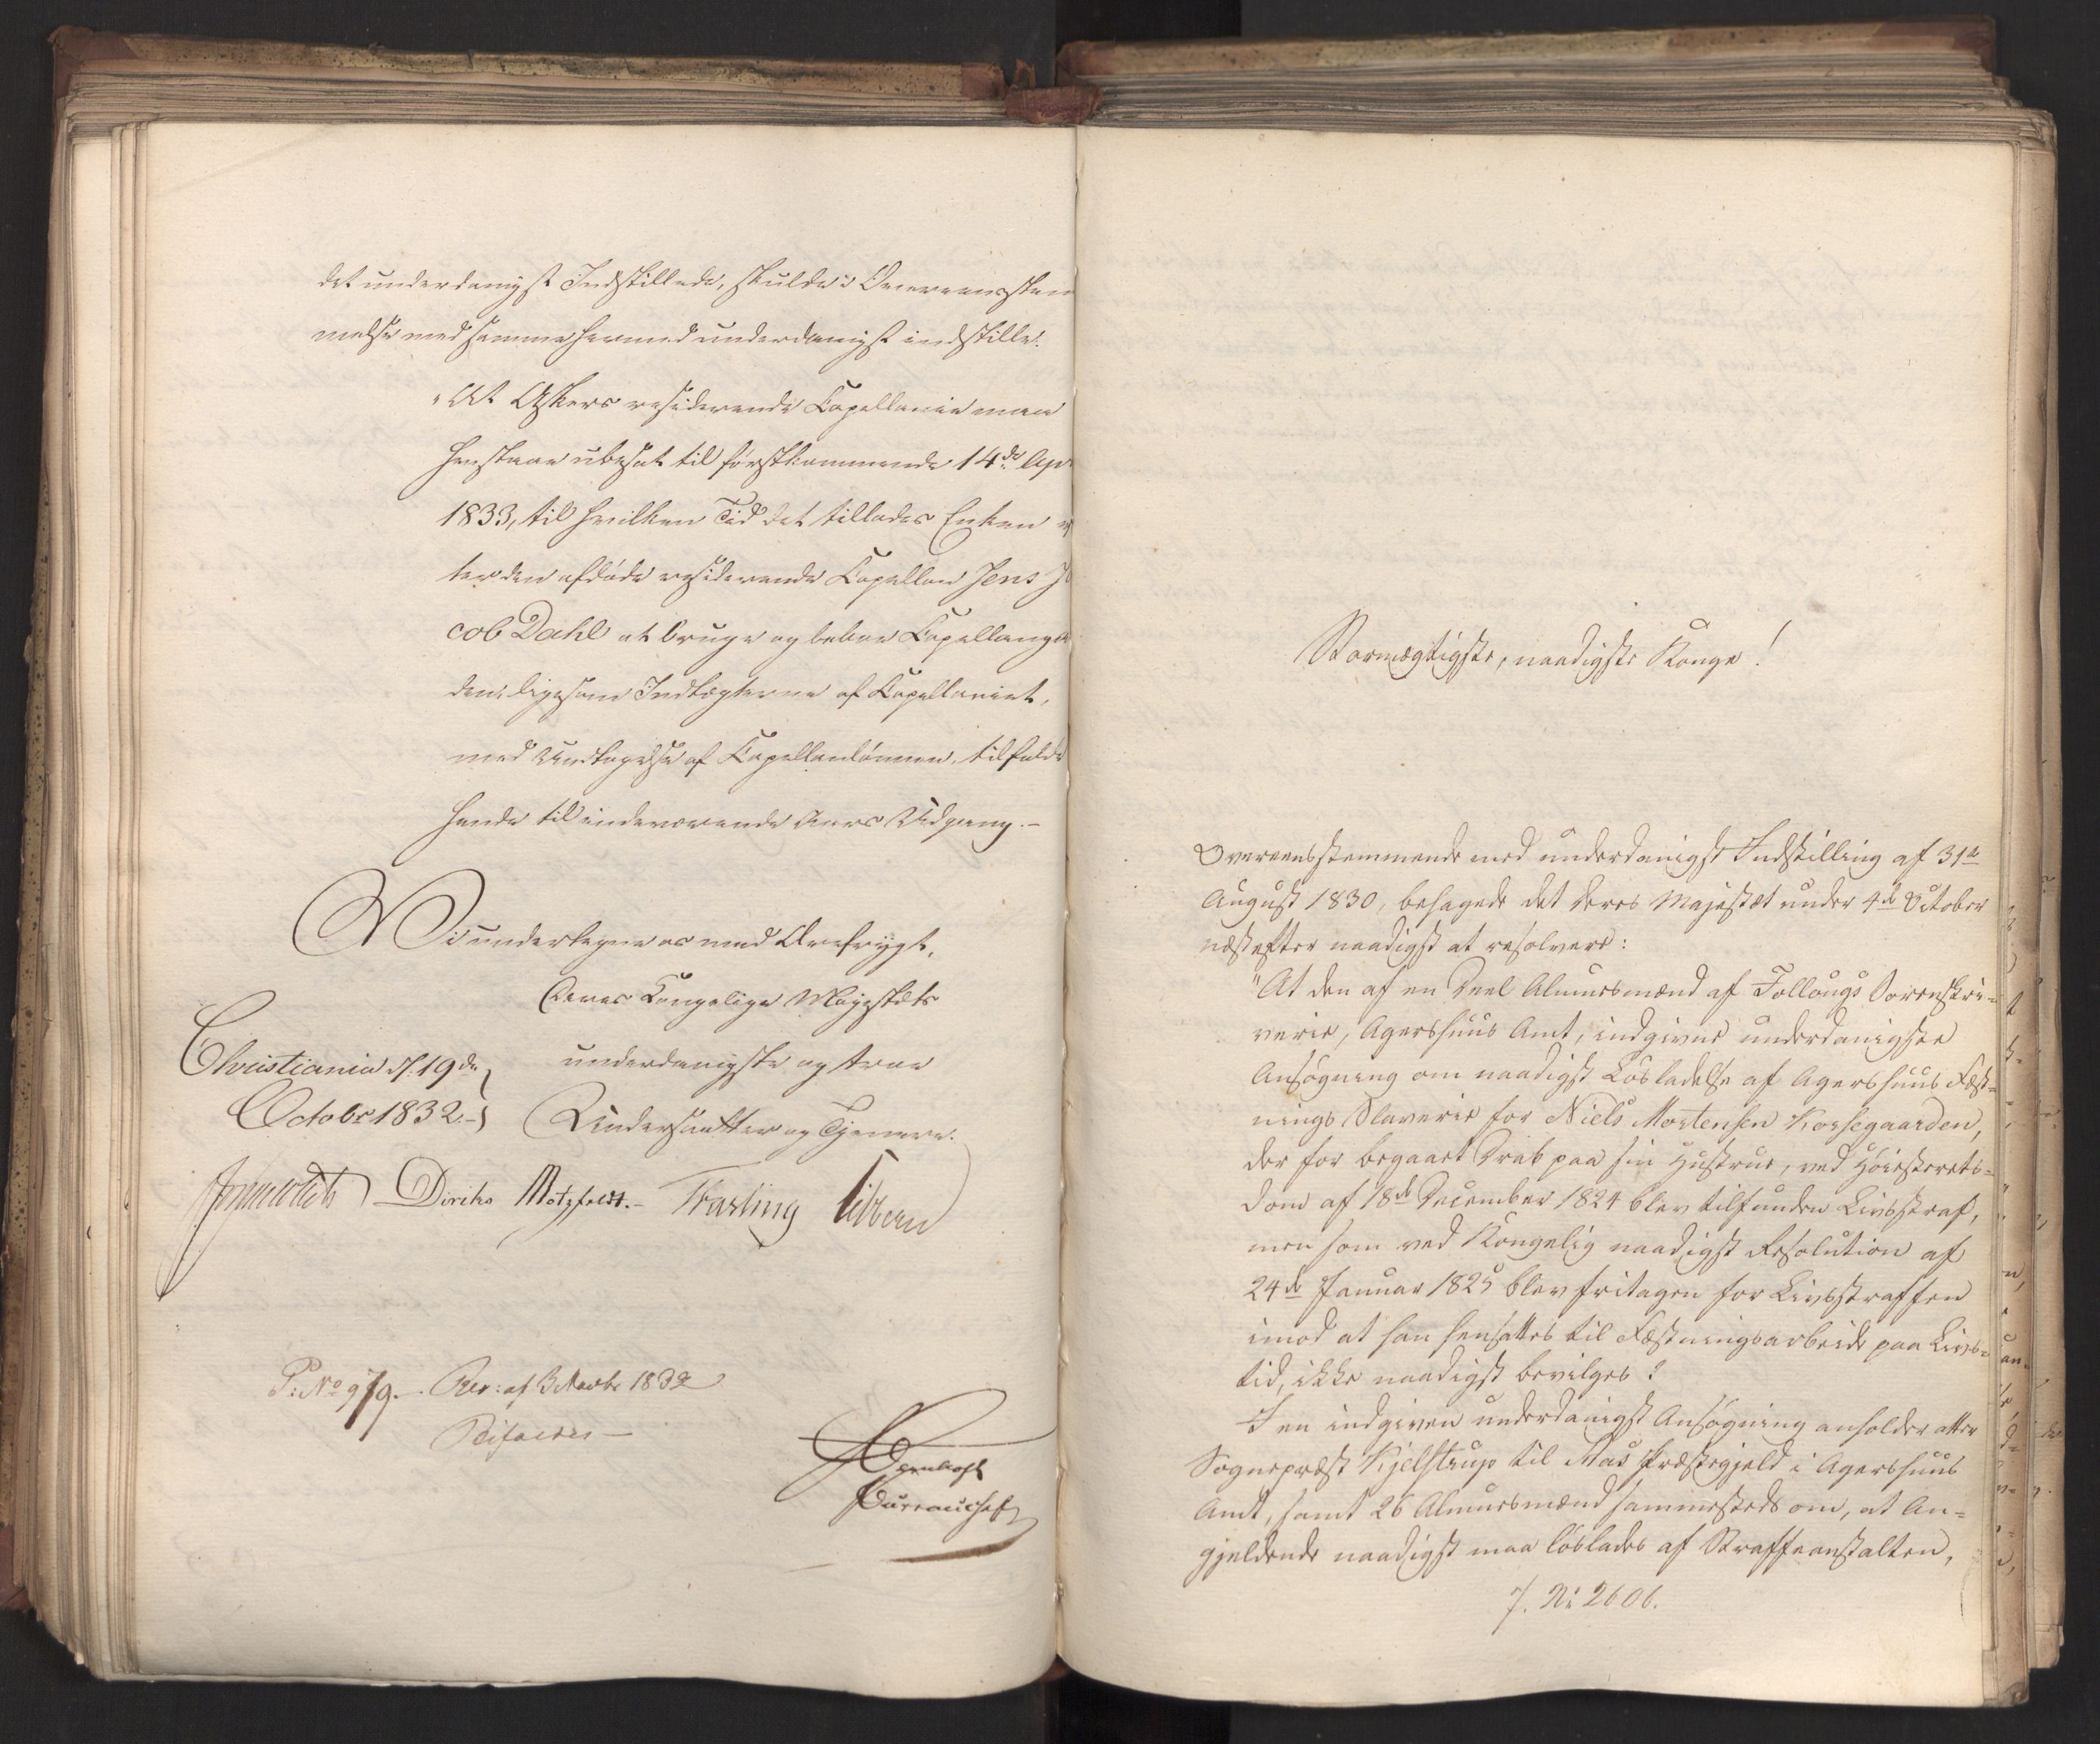 det underdanigst Indstillede, skulde i Overeensstem
melse med samme hermed underdanigst indstille:
"At Askers residerende Capellanie maa
henstaae ubesat til førstkommende 14de Apr
1833, til hvilken Tid det tillades Enken ef
ter den afdøde residerende Capellan Jens Ja
cob Dahl at bruge og beboe Capellangaar
den, ligesom Indtægterne af Capellaniet,
med Undtagelse af Capellanlønnen, tilfalde
hende til indeværende Aars Udgang.-
Vi undertegne os med Ærefrygt,
Deres Kongelige Majestæts
Christiania d: 19de
underdanigste og troe
Octobr 1832.-
Undersaatter og Tjenere.
Diriks Motzfeldt.- Fasting Sibbern
P: No 979. Res: af 3 Novbr 1832
Bifaldes -
Stormægtigste, naadigste Konge!
Overeensstemmende med underdanigst Indstilling af 31te
August 1830, behagede det Deres Majestæt under 4de October
næstefter naadigst at resolvere:
"At den af en Deel Almuesmænd af Follougs Sorenskri=
verie, Agershuus Amt, indgivne underdanigste
Ansøgning om naadigst Løsladelse af Agershuus Fæst=
nings Slaverie for Niels Mortensen Korsegaarden,
der for begaaet Drab paa sin Hustrue, ved Høiesterets=
dom af 18de December 1824 blev tilfunden Livsstraf,
men som ved Kongelig naadigst Resolution af
24de Januar 1825 blev fritagen for Livsstraffen
imod at han hensattes til Fæstningsarbeide paa Livs=
tid, ikke naadigst bevilges?
I en indgiven underdanigst Ansøgning anholder atter
Sognepræst Kjelstrup til Aas Præstegjeld i Agershuus
Amt, samt 26 Almuesmænd sammesteds om, at An=
gjeldende naadigst maa løslades af Straffeanstalten,
J. No 2606.